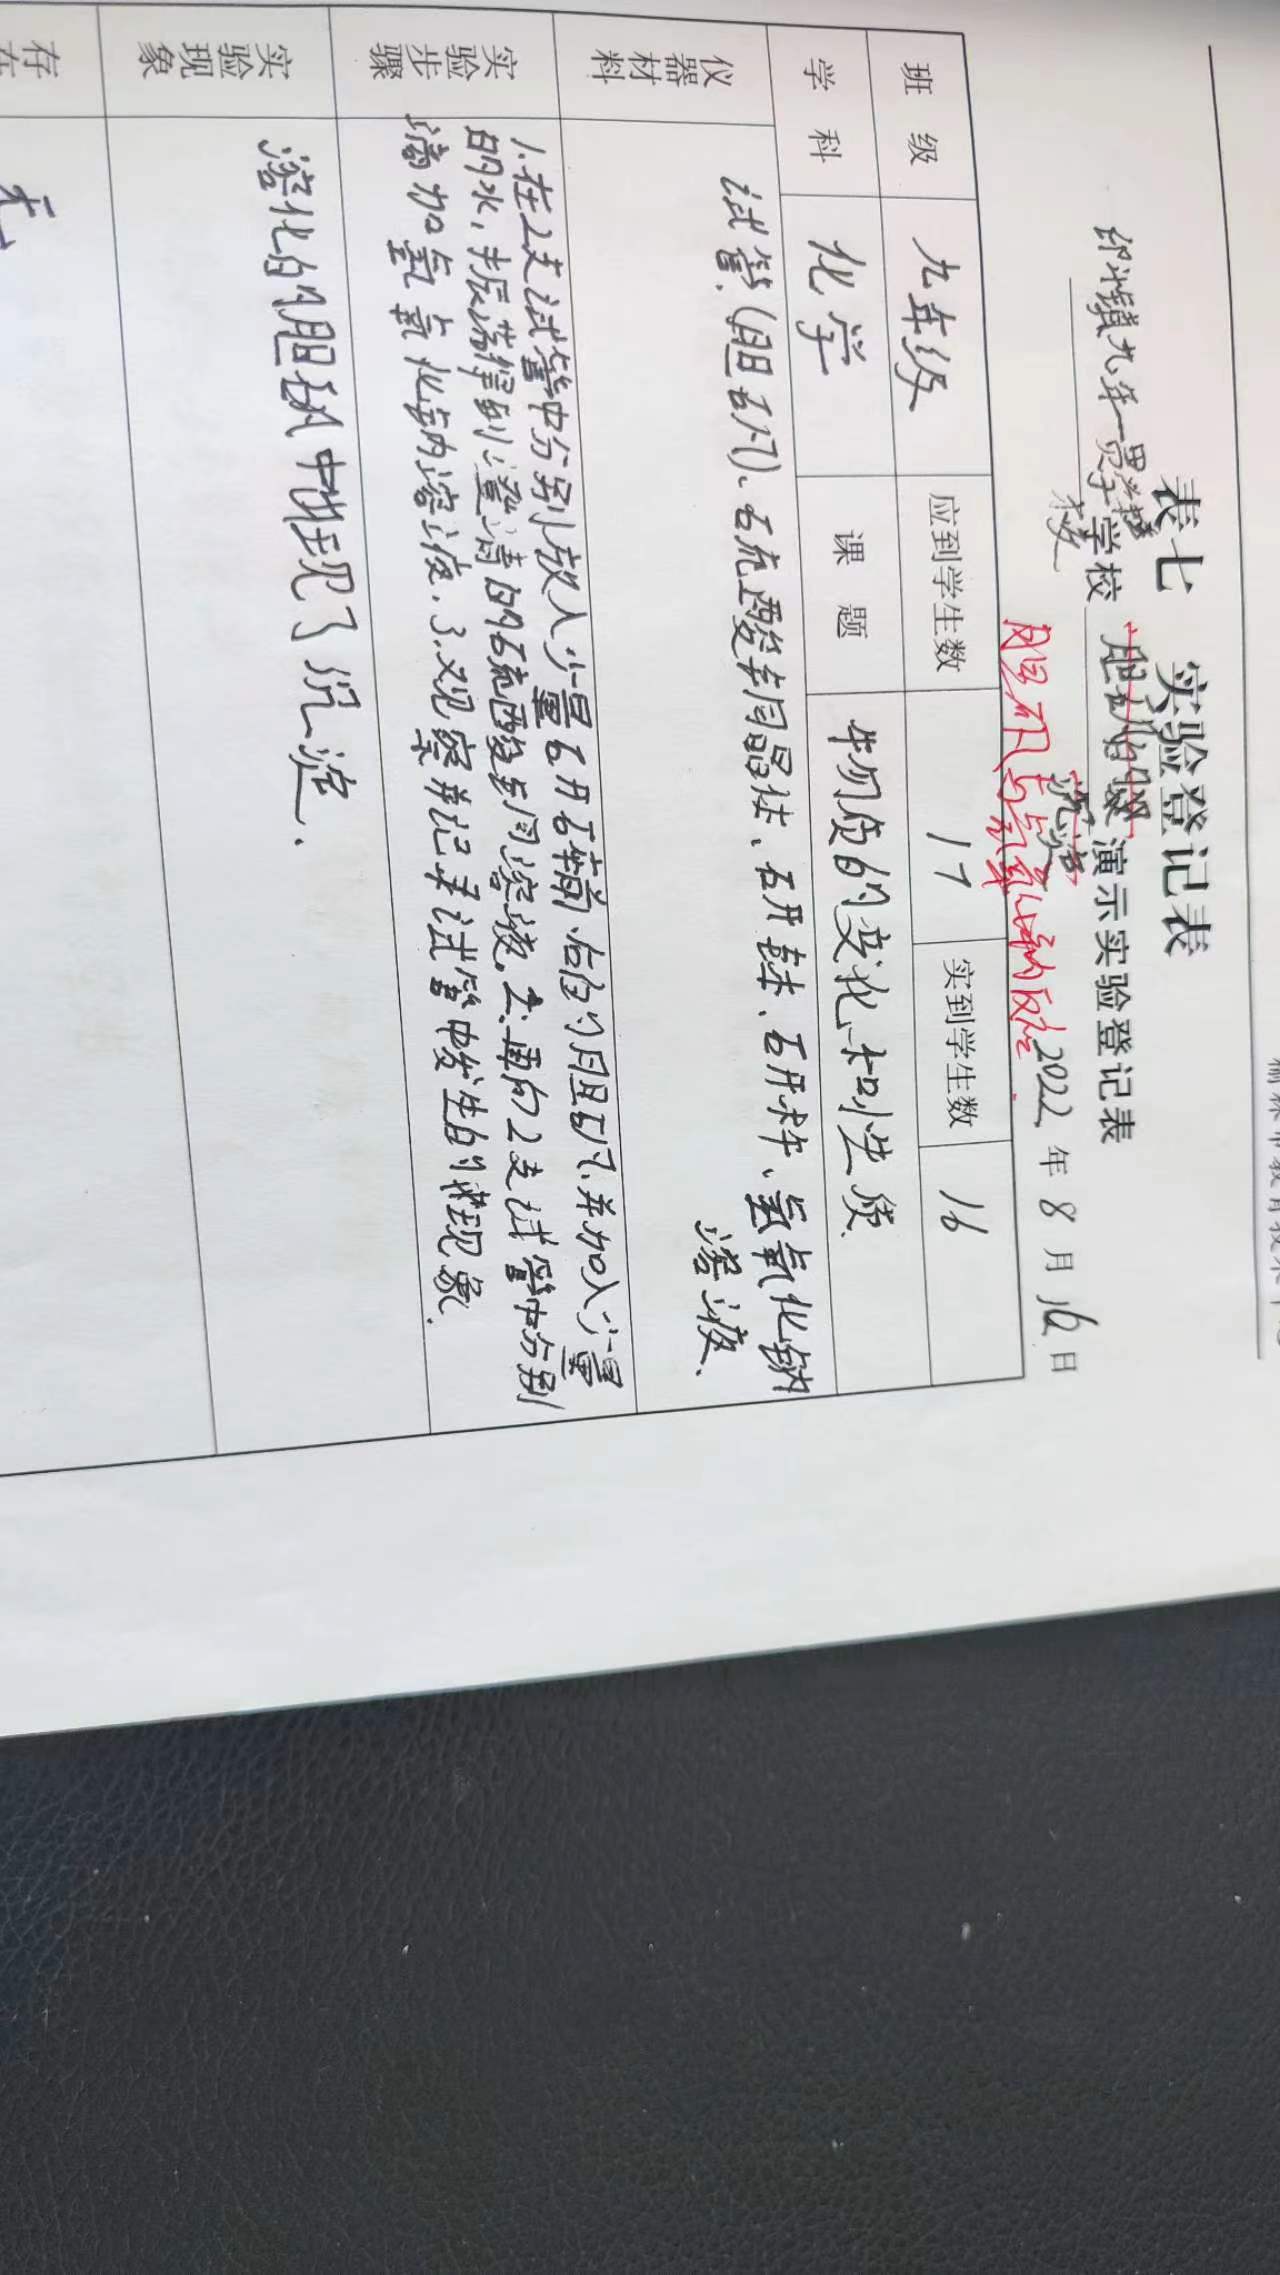 表七 实验登记表
镇九年一贯制学校 学校 演示实验登记表
胆矾与氢氧化钠反应 2022 年 8 月 16 日
班级 九年级 应到学生数 17 实到学生数 16
学科 化学 课题 物质的变化和性质
仪器材料
试管、(胆矾)、硫酸铜晶体、研钵、研杵、氢氧化钠
溶液、
实验步骤
1.在2支试管中分别放入少量研碎前、后的胆矾,并加入少量
的水,振荡得到澄清的硫酸铜溶液.2.再向2支试管中分别
滴加氢氧化钠溶液.3.观察并记录试管中发生的现象.
实验现象
溶化的胆矾中出现了沉淀.
存在
无